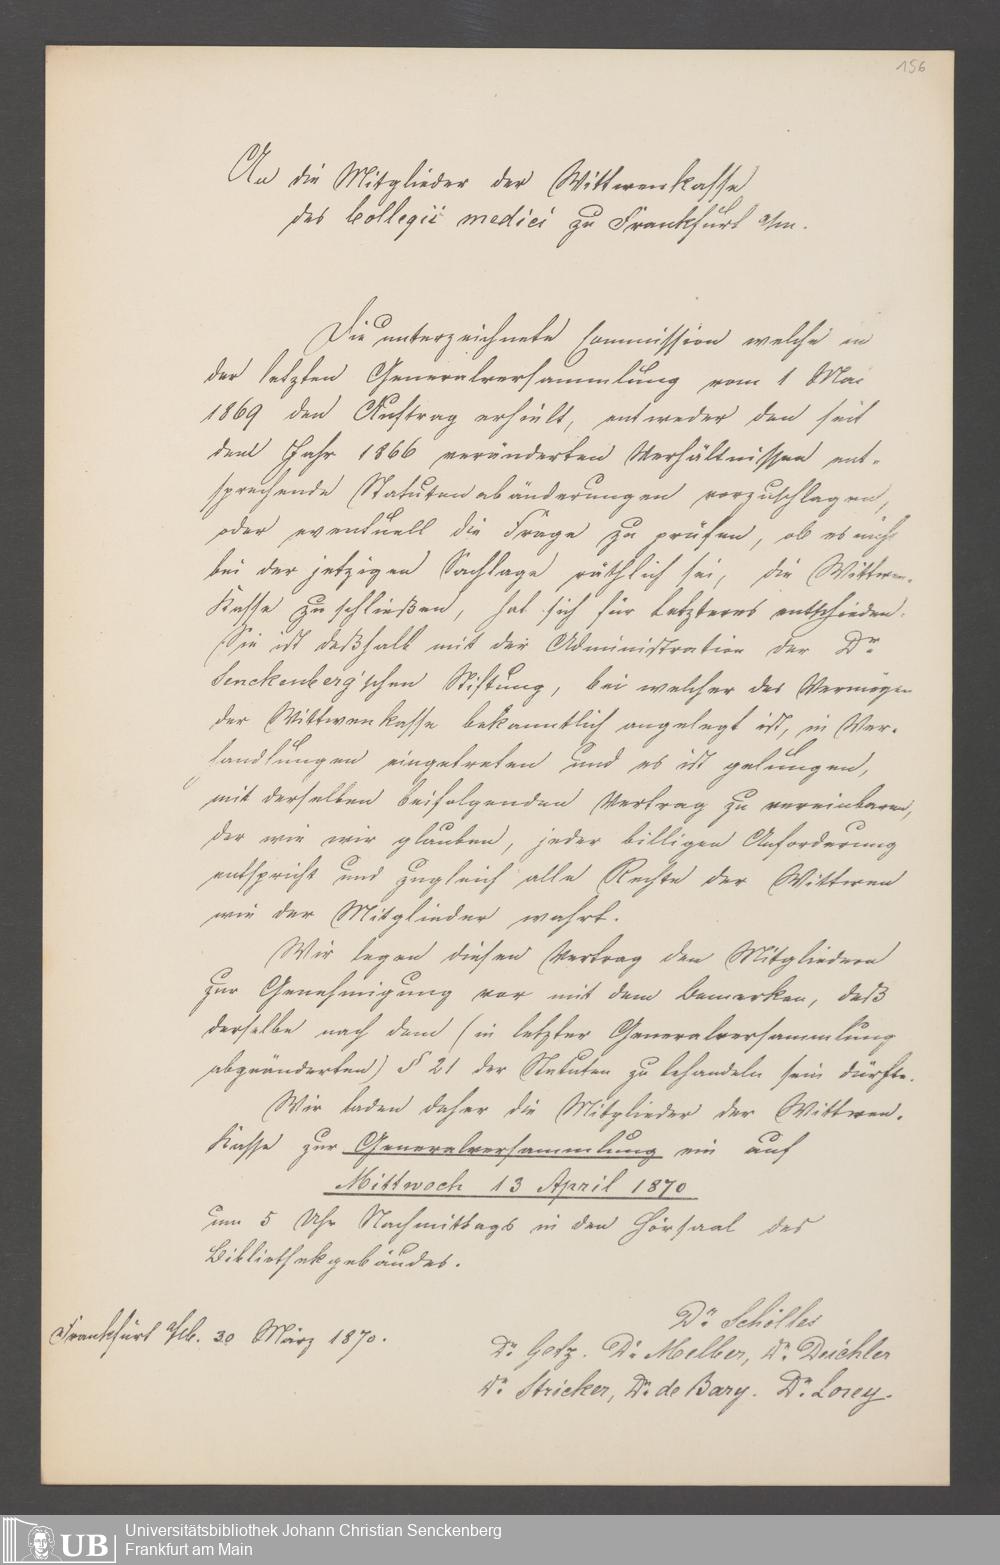 156
An die Mitglieder der Wittwenkasse
des Collegii medici zu Frankfurt a/m.
Die unterzeichnete Commission welche in
der letzten Generalversammlung vom 1 Mai
1869 den Auftrag erhielt, entweder den seit
dem Jahr 1866 veränderten Verhältnissen ent-
sprechende Statutenabänderungen vorzuschlagen,
oder eventuell die Frage zu prüfen, ob es nicht
bei der jetzigen Sachlage räthlich sei, die Wittwen-
Kasse zu schließen, hat sich für Letzteres entschieden.
Sie ist deßhalb mit der Administration der Dr
Senckenberg'schen Stiftung, bei welcher das Vermögen
der Wittwenkasse bekanntlich angelegt ist, in Ver-
handlungen eingetreten und es ist gelungen,
mit derselben beifolgenden Vertrag zu vereinbaren,
der wie wir glauben, jeder billigen Anforderung
entspricht und zugleich alle Rechte der Wittwen
wie der Mitglieder wahrt.
Wir legen diesen Vertrag den Mitgliedern
zur Genehmigung vor mit dem Bemerken, daß
derselbe nach dem (in letzter Generalversammlung
abgeänderten) § 21 der Statuten zu behandeln sein dürfte.
Wir laden daher die Mitglieder der Wittwen-
Kasse zur Generalversammlung ein auf
Mittwoch 13 April 1870
um 5 Uhr Nachmittags in den Hörsaal des
Bibliothekgebäudes.
Frankfurt a/M. 30 März 1870.
Dr Schölles
Dr Getz. Dr Melber, Dr Deichler
Dr Stricker, Dr de Bary. Dr Lorey.
UB
Universitätsbibliothek Johann Christian Senckenberg
Frankfurt am Main